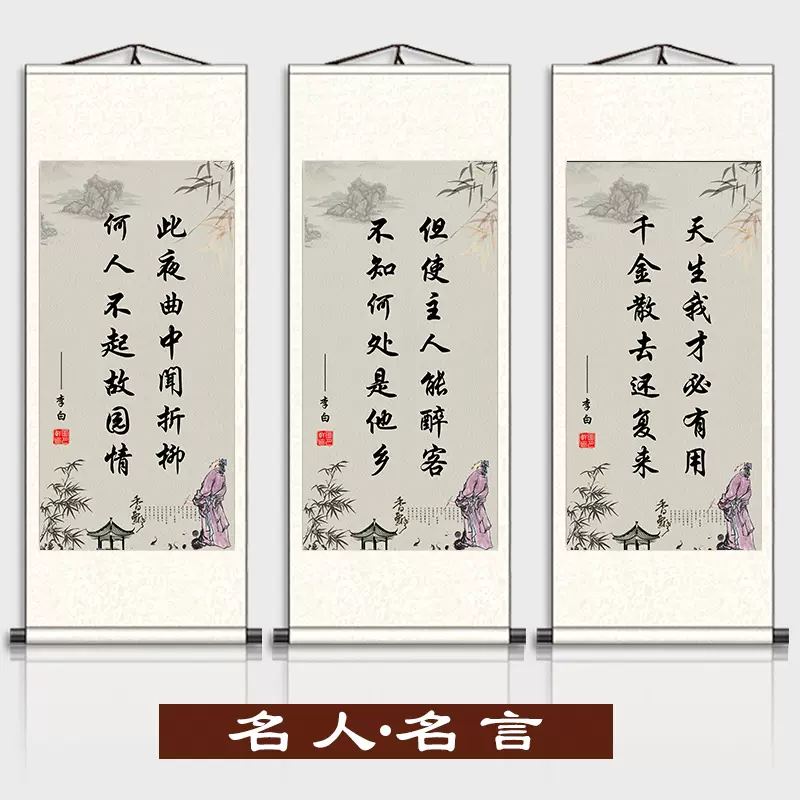 此夜曲中闻折柳
何人不起故园情
——李白
但使主人能醉客
不知何处是他乡
——李白
天生我才必有用
千金散去还复来
——李白
名人·名言